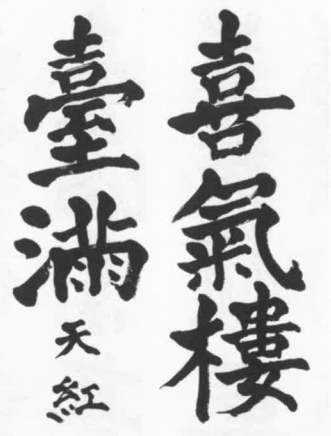 喜氣樓
臺滿
天紅